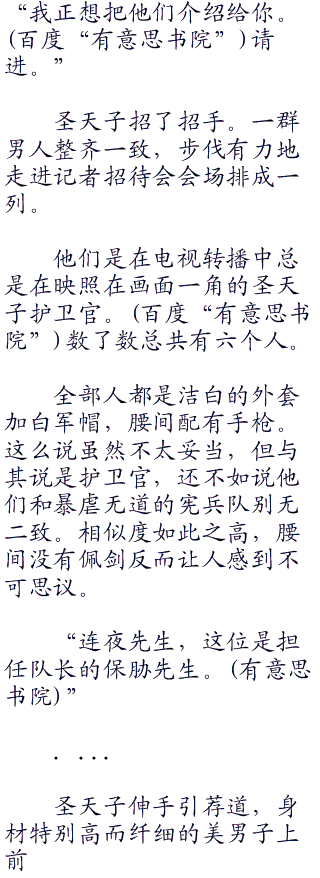 “我正想把他们介绍给你。
(百度“有意思书院”)请
进。”
圣天子招了招手。一群
男人整齐一致，步伐有力地
走进记者招待会会场排成一
列。
他们是在电视转播中总
是在映照在画面一角的圣天
子护卫官。(百度“有意思书
院”)数了数总共有六个人。
全部人都是洁白的外套
加白军帽，腰间配有手枪。
这么说虽然不太妥当，但与
其说是护卫官，还不如说他
们和暴虐无道的宪兵队别无
二致。相似度如此之高，腰
间没有佩剑反而让人感到不
可思议。
“连夜先生，这位是担
任队长的保胁先生。(有意思
书院)”
. ...
圣天子伸手引荐道，身
材特别高而纤细的美男子上
前